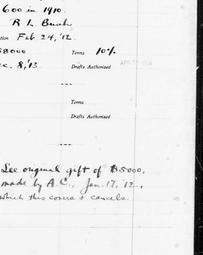 600 in 1910.
R L Bush
tion Feb 24, '12.
$8000 Terms 10%
ec. 8, '13. Drafts Authorized
Terms
Drafts Authorized
See original gift of $5000,
made by A.C., Jan. 17, '12,
which this covers & cancels.